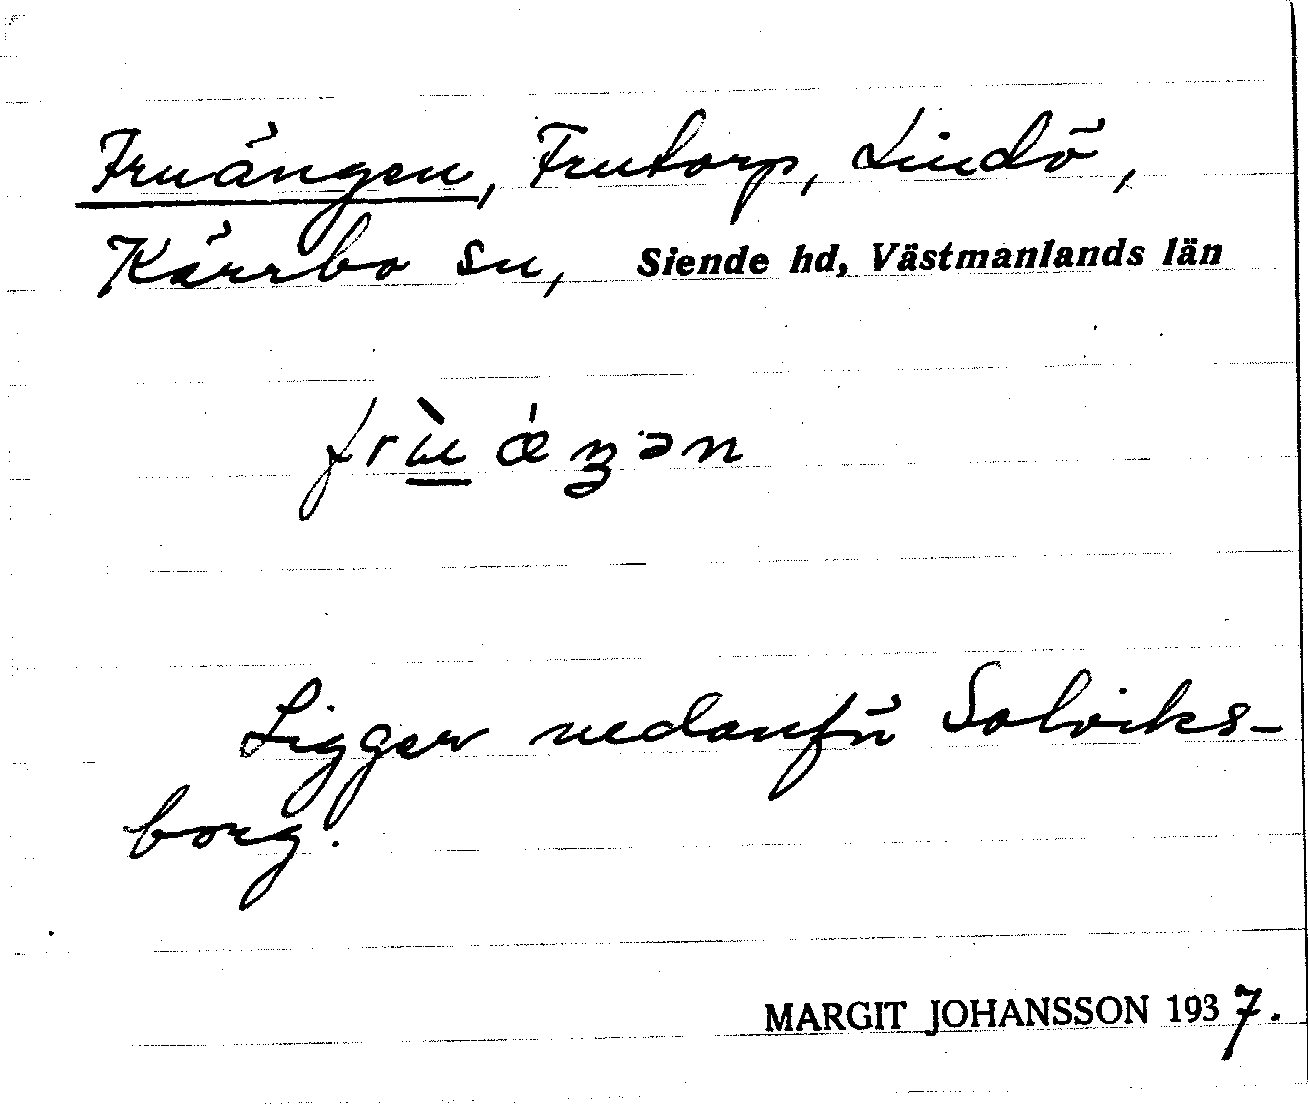 Fruängen, Frutorp, Lindö,
Kärrbo sn, Siende hd, Västmanlands län
Ligger nedanför Solviks-
borg.
MARGIT JOHANSSON 1937.